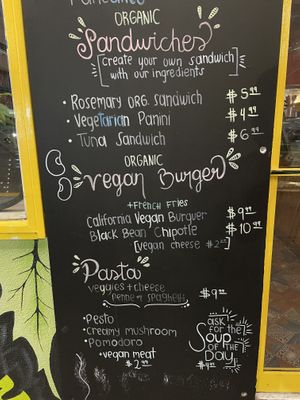 ORGANIC
Sandwiches
[create your own sandwich
with our ingredients]
• Rosemary ORG. sandwich $5.99
• Vegetarian Panini $4.99
• Tuna Sandwich $6.99
ORGANIC
Vegan Burger
+FRENCH FRIES
California Vegan Burguer $9.99
Black Bean Chipotle $10.99
[vegan cheese $2.50]
Pasta
veggies + cheese
penne or spaghetti $9.99
• Pesto
• creamy mushroom
• Pomodoro
• vegan meat
$2.99
ask
for the
Soup
OF THE
DAY
$4.99